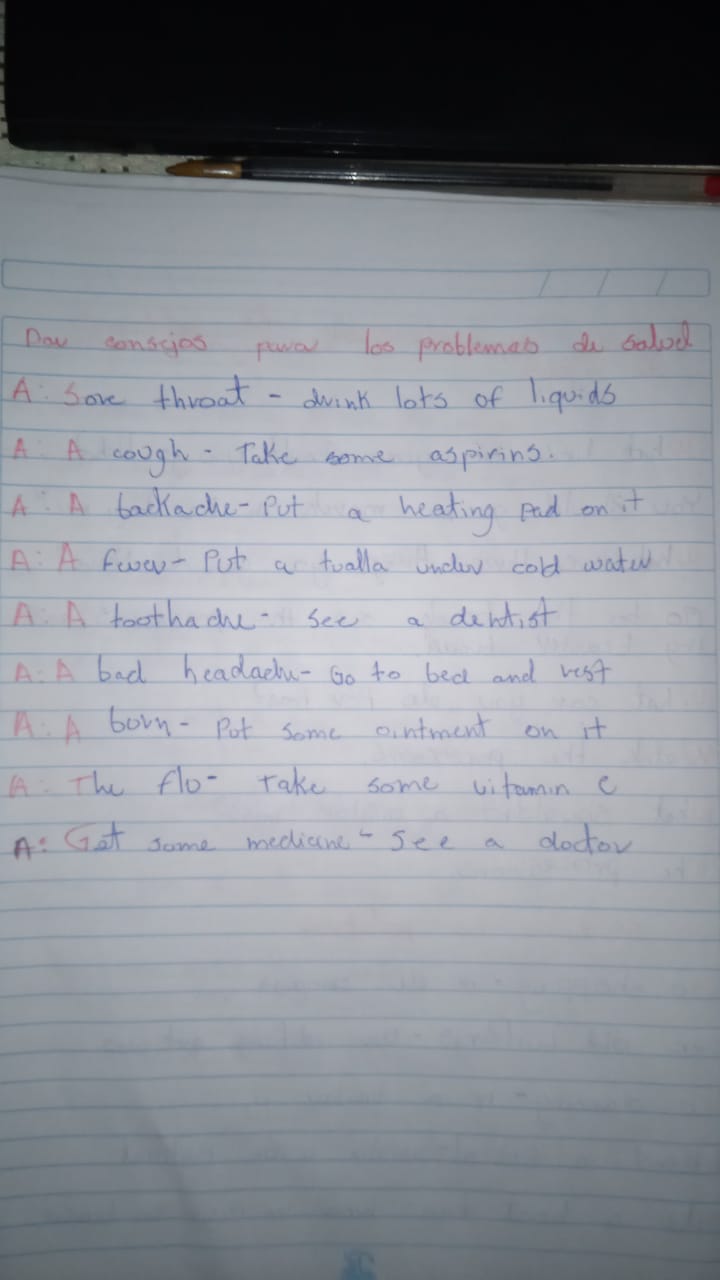 Dar consejos para los problemas de salud
A: Sore throat - drink lots of liquids
A: A cough - Take some aspirins.
A: A backache - Put a heating pad on it
A: A fever - Put a tualla under cold water
A: A toothache - See a dentist
A: A bad headache - Go to bed and rest
A: A born - Put some ointment on it
A: The flo - Take some vitamin C
A: Get some medicine - See a doctor